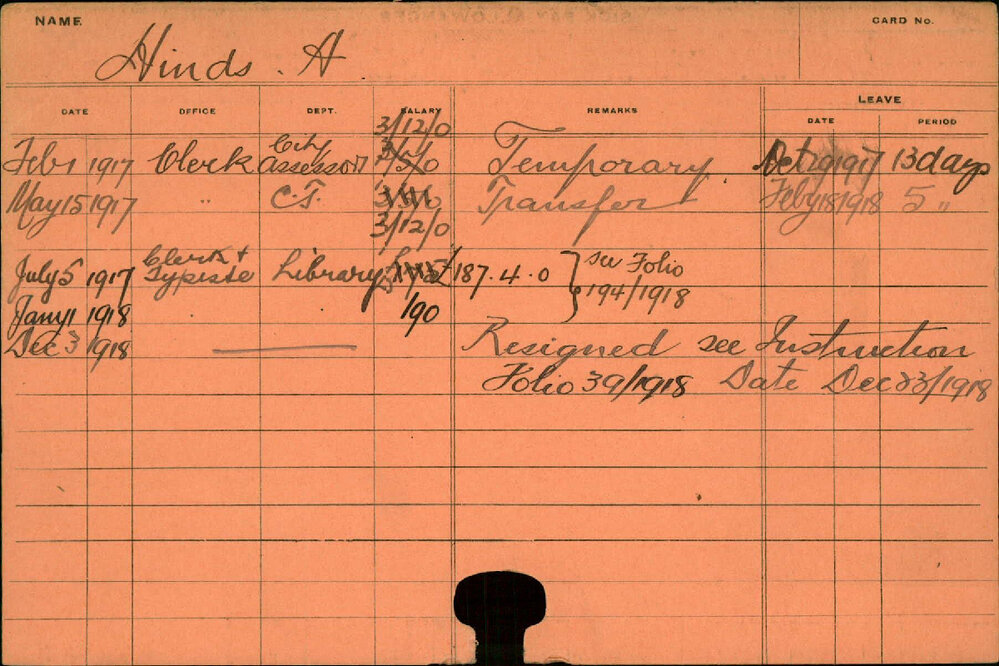 NAME CARD No.
Hinds . A
DATE OFFICE DEPT. SALARY REMARKS LEAVE
DATE PERIOD
3/12/0
Feb 1 1917 Clerk City Assessor 3/5/0 Temporary Oct 29 1917 13 days
May 15 1917 " C.T. Transfer Feby 18 1918 5 "
3/12/0
July 5 1917 Clerk + Typiste Library £187.4.0 } see Folio
194/1918
Jany 1 1918 190
Dec 3 1918 Resigned see Instruction
Folio 39/1918 Date Dec 23/1918